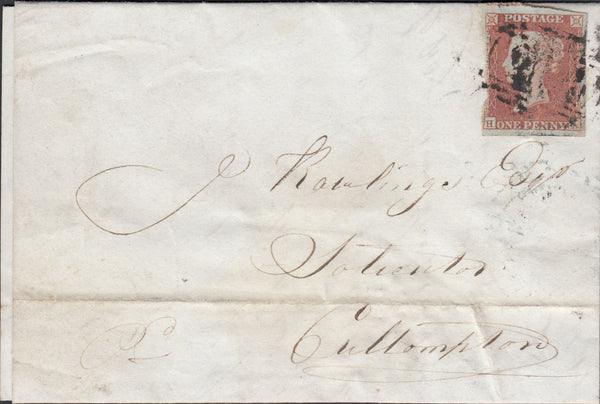 POSTAGE
ONE PENNY
J Rawlings Esqr
Solicitor
Pd
Cullompton